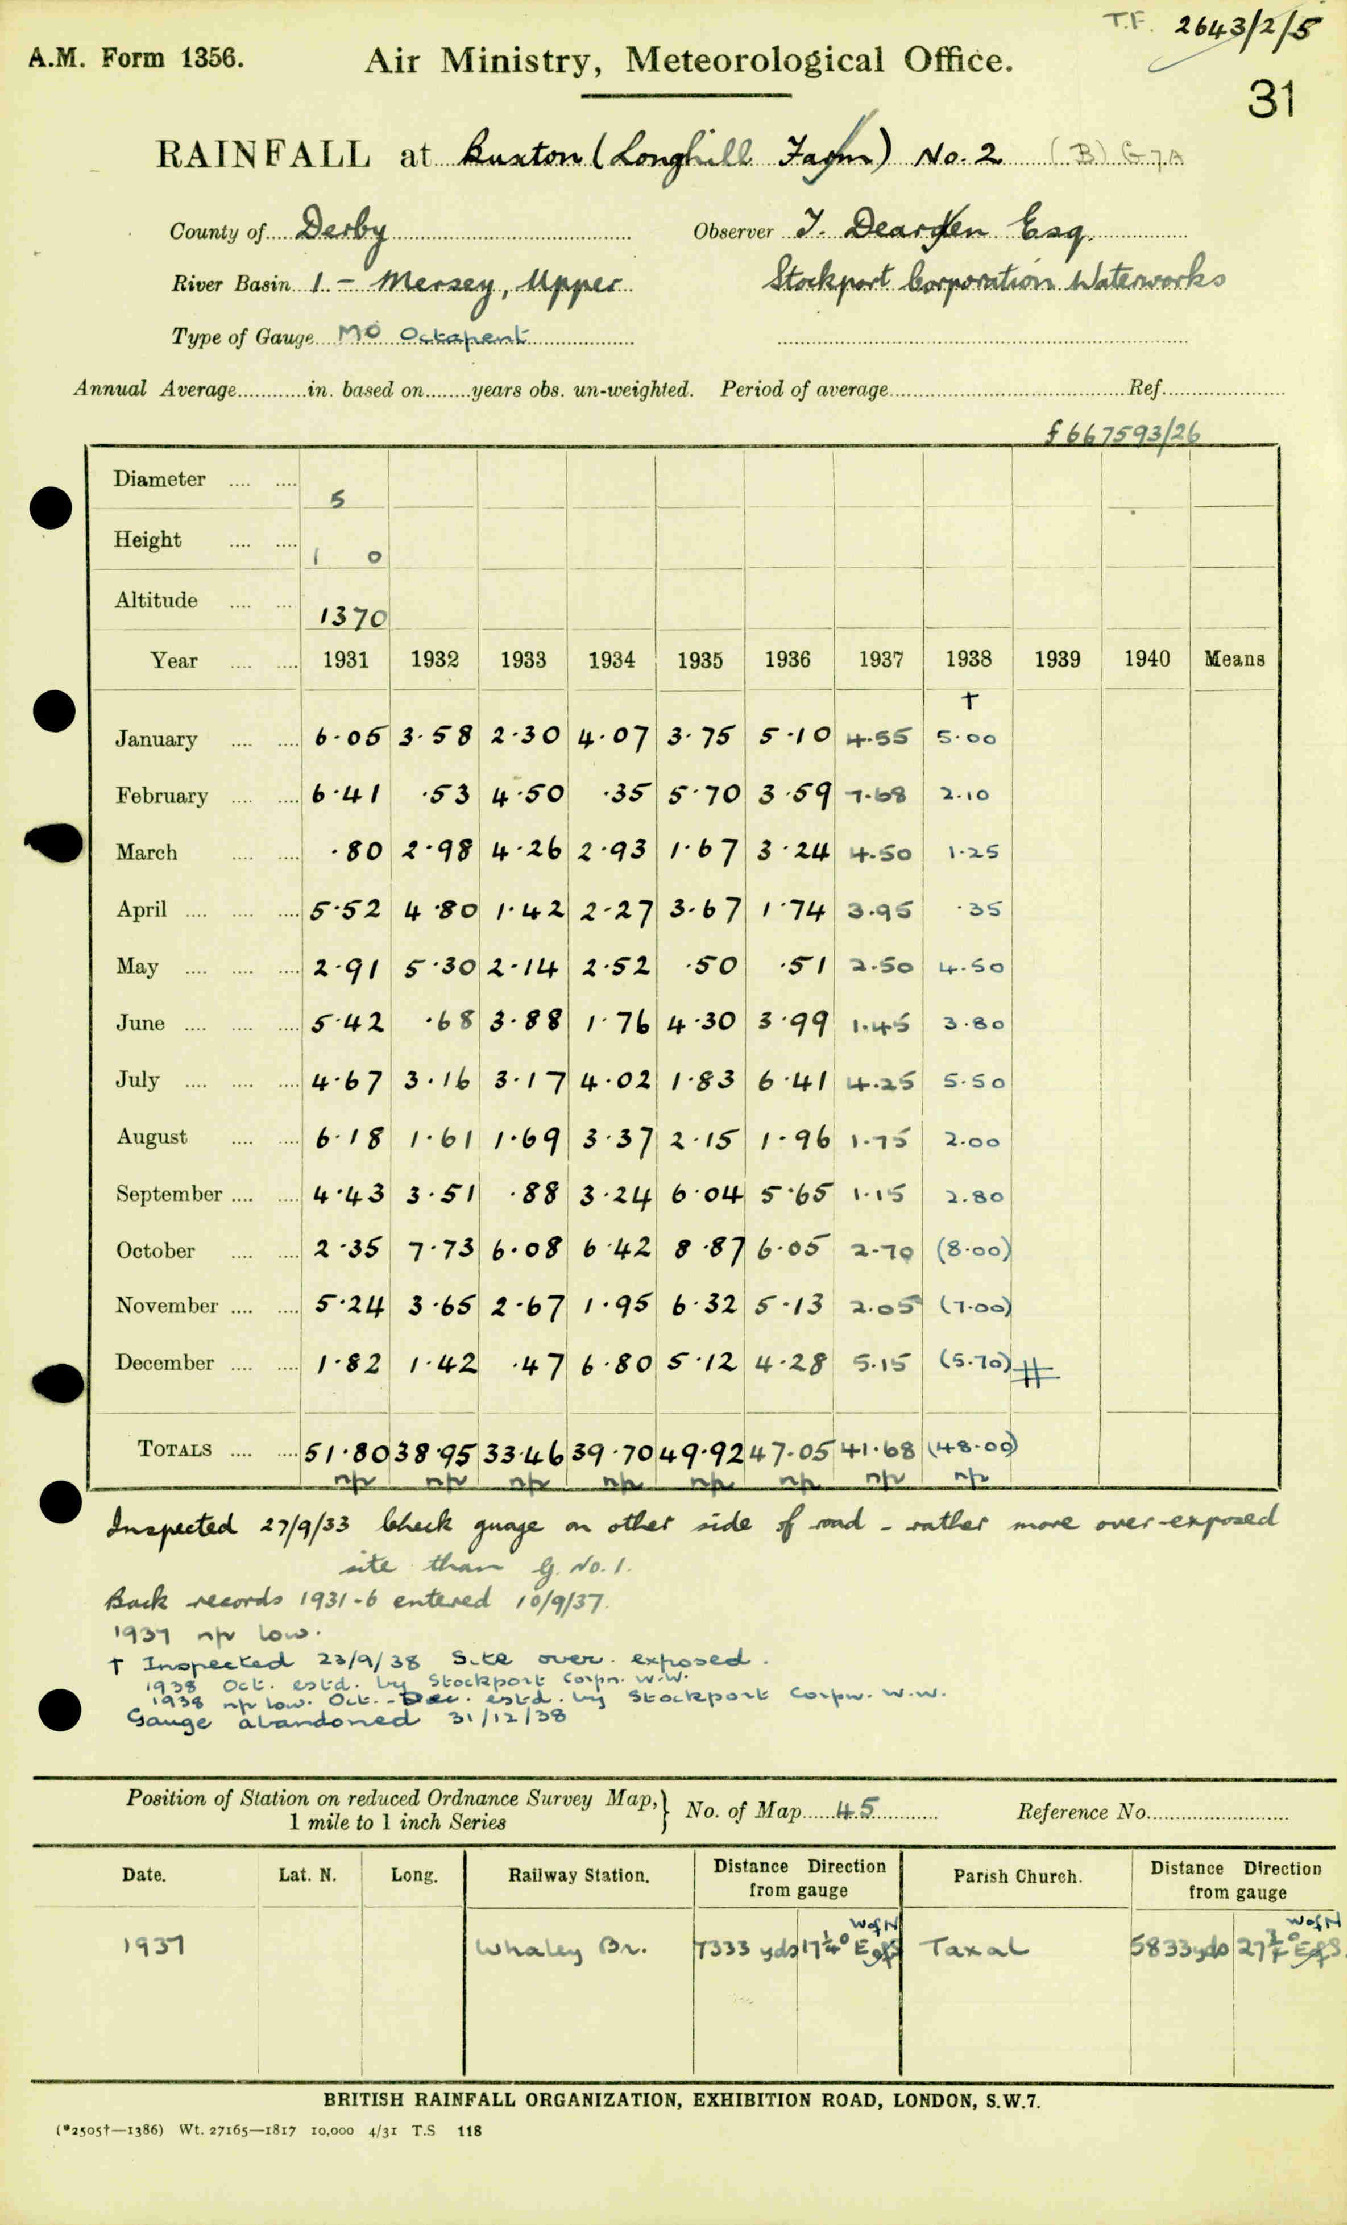 T.F. 2643/2/5
A.M. Form 1356. Air Ministry, Meteorological Office.
31
RAINFALL at Buxton (Longhill Farm) No. 2 (B) G7A
County of Derby Observer T. Dearden Esq.
River Basin 1 - Mersey, Upper Stockport Corporation Waterworks
Type of Gauge MO Octapent
Annual Average............in. based on........years obs. un-weighted. Period of average........................................Ref.....................
f 667593/26
Diameter .... .... 5
Height .... .... 1 0
Altitude .... .... 1370
Year .... .... 1931 1932 1933 1934 1935 1936 1937 1938 1939 1940 Means
†
January .... .... 6·05 3·58 2·30 4·07 3·75 5·10 4·55 5·00
February .... .... 6·41 ·53 4·50 ·35 5·70 3·59 7·68 2·10
March .... .... ·80 2·98 4·26 2·93 1·67 3·24 4·50 1·25
April .... .... .... 5·52 4·80 1·42 2·27 3·67 1·74 3·95 ·35
May .... .... .... 2·91 5·30 2·14 2·52 ·50 ·51 2·50 4·50
June .... .... .... 5·42 ·68 3·88 1·76 4·30 3·99 1·45 3·80
July .... .... .... 4·67 3·16 3·17 4·02 1·83 6·41 4·25 5·50
August .... .... 6·18 1·61 1·69 3·37 2·15 1·96 1·75 2·00
September .... .... 4·43 3·51 ·88 3·24 6·04 5·65 1·15 2·80
October .... .... 2·35 7·73 6·08 6·42 8·87 6·05 2·70 (8·00)
November .... .... 5·24 3·65 2·67 1·95 6·32 5·13 2·05 (7·00)
December .... .... 1·82 1·42 ·47 6·80 5·12 4·28 5·15 (5·70) #
TOTALS .... .... 51·80 38·95 33·46 39·70 49·92 47·05 41·68 (48·00)
np np np np np np np np
Inspected 27/9/33 Check guage on other side of road - rather more over-exposed
site than G. No. 1.
Back records 1931-6 entered 10/9/37.
1937 np low.
† Inspected 23/9/38 Site over. exposed.
1938 Oct. estd. by Stockport Corpn. W.W.
1938 np low. Oct. - Dec. estd. by Stockport Corpn. W.W.
Gauge abandoned 31/12/38
Position of Station on reduced Ordnance Survey Map, } No. of Map 45 Reference No.
1 mile to 1 inch Series
Date. Lat. N. Long. Railway Station. Distance Direction from gauge Parish Church. Distance Direction from gauge
W of N W of N
1937 Whaley Br. 7333 yds 17¼° E of S Taxal 5833 yds 27¾° E of S.
BRITISH RAINFALL ORGANIZATION, EXHIBITION ROAD, LONDON, S.W.7.
(*2505†—1386) Wt. 27165—1817 10,000 4/31 T.S 118